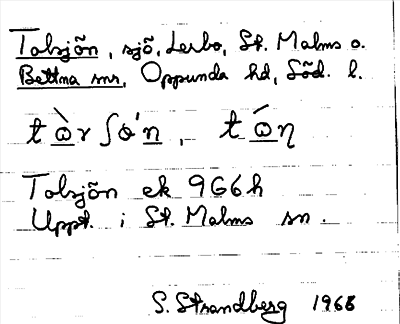 Tolsjõn, sjõ, Lerbo, St. Malms o.
Bettna snr, Oppunda hd, Sõd. l.
tòrʃơ'n, tóŋ
Tolsjõn ek 9G6h
Uppt. i St. Malms sn.
S. Strandberg 1968